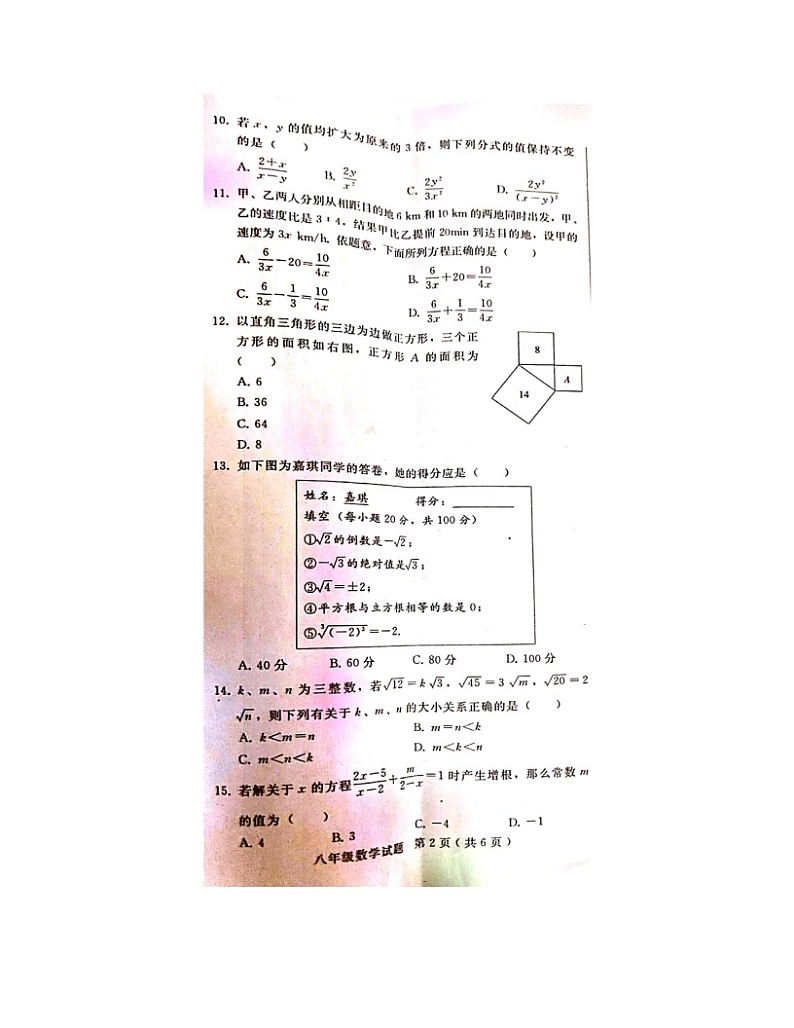 10. 若 x, y 的值均扩大为原来的 3 倍，则下列分式的值保持不变
的是（ ）
A. \frac{2+x}{x-y} B. \frac{2y}{x^2} C. \frac{2y^2}{3x^2} D. \frac{2y^2}{(x-y)^2}
11. 甲、乙两人分别从相距目的地 6 km 和 10 km 的两地同时出发，甲、
乙的速度比是 3：4，结果甲比乙提前 20min 到达目的地，设甲的
速度为 3x km/h. 依题意，下面所列方程正确的是（ ）
A. \frac{6}{3x}-20=\frac{10}{4x} B. \frac{6}{3x}+20=\frac{10}{4x}
C. \frac{6}{3x}-\frac{1}{3}=\frac{10}{4x} D. \frac{6}{3x}+\frac{1}{3}=\frac{10}{4x}
12. 以直角三角形的三边为边做正方形，三个正
方形的面积如右图，正方形 A 的面积为
（ ）
A. 6
B. 36
C. 64
D. 8
8
A
14
13. 如下图为嘉琪同学的答卷，她的得分应是（ ）
姓名：嘉琪 得分：________
填空（每小题 20 分，共 100 分）
①√2的倒数是-√2；
②-√3的绝对值是√3；
③√4=±2；
④平方根与立方根相等的数是 0；
⑤∛(-2)³=-2.
A. 40 分 B. 60 分 C. 80 分 D. 100 分
14. k、m、n 为三整数，若√12=k√3，√45=3√m，√20=2
√n，则下列有关于 k、m、n 的大小关系正确的是（ ）
A. k<m=n B. m=n<k
C. m<n<k D. m<k<n
15. 若解关于 x 的方程\frac{2x-5}{x-2}+\frac{m}{2-x}=1 时产生增根，那么常数 m
的值为（ ）
A. 4 B. 3 C. -4 D. -1
八年级数学试题 第 2 页（共 6 页）